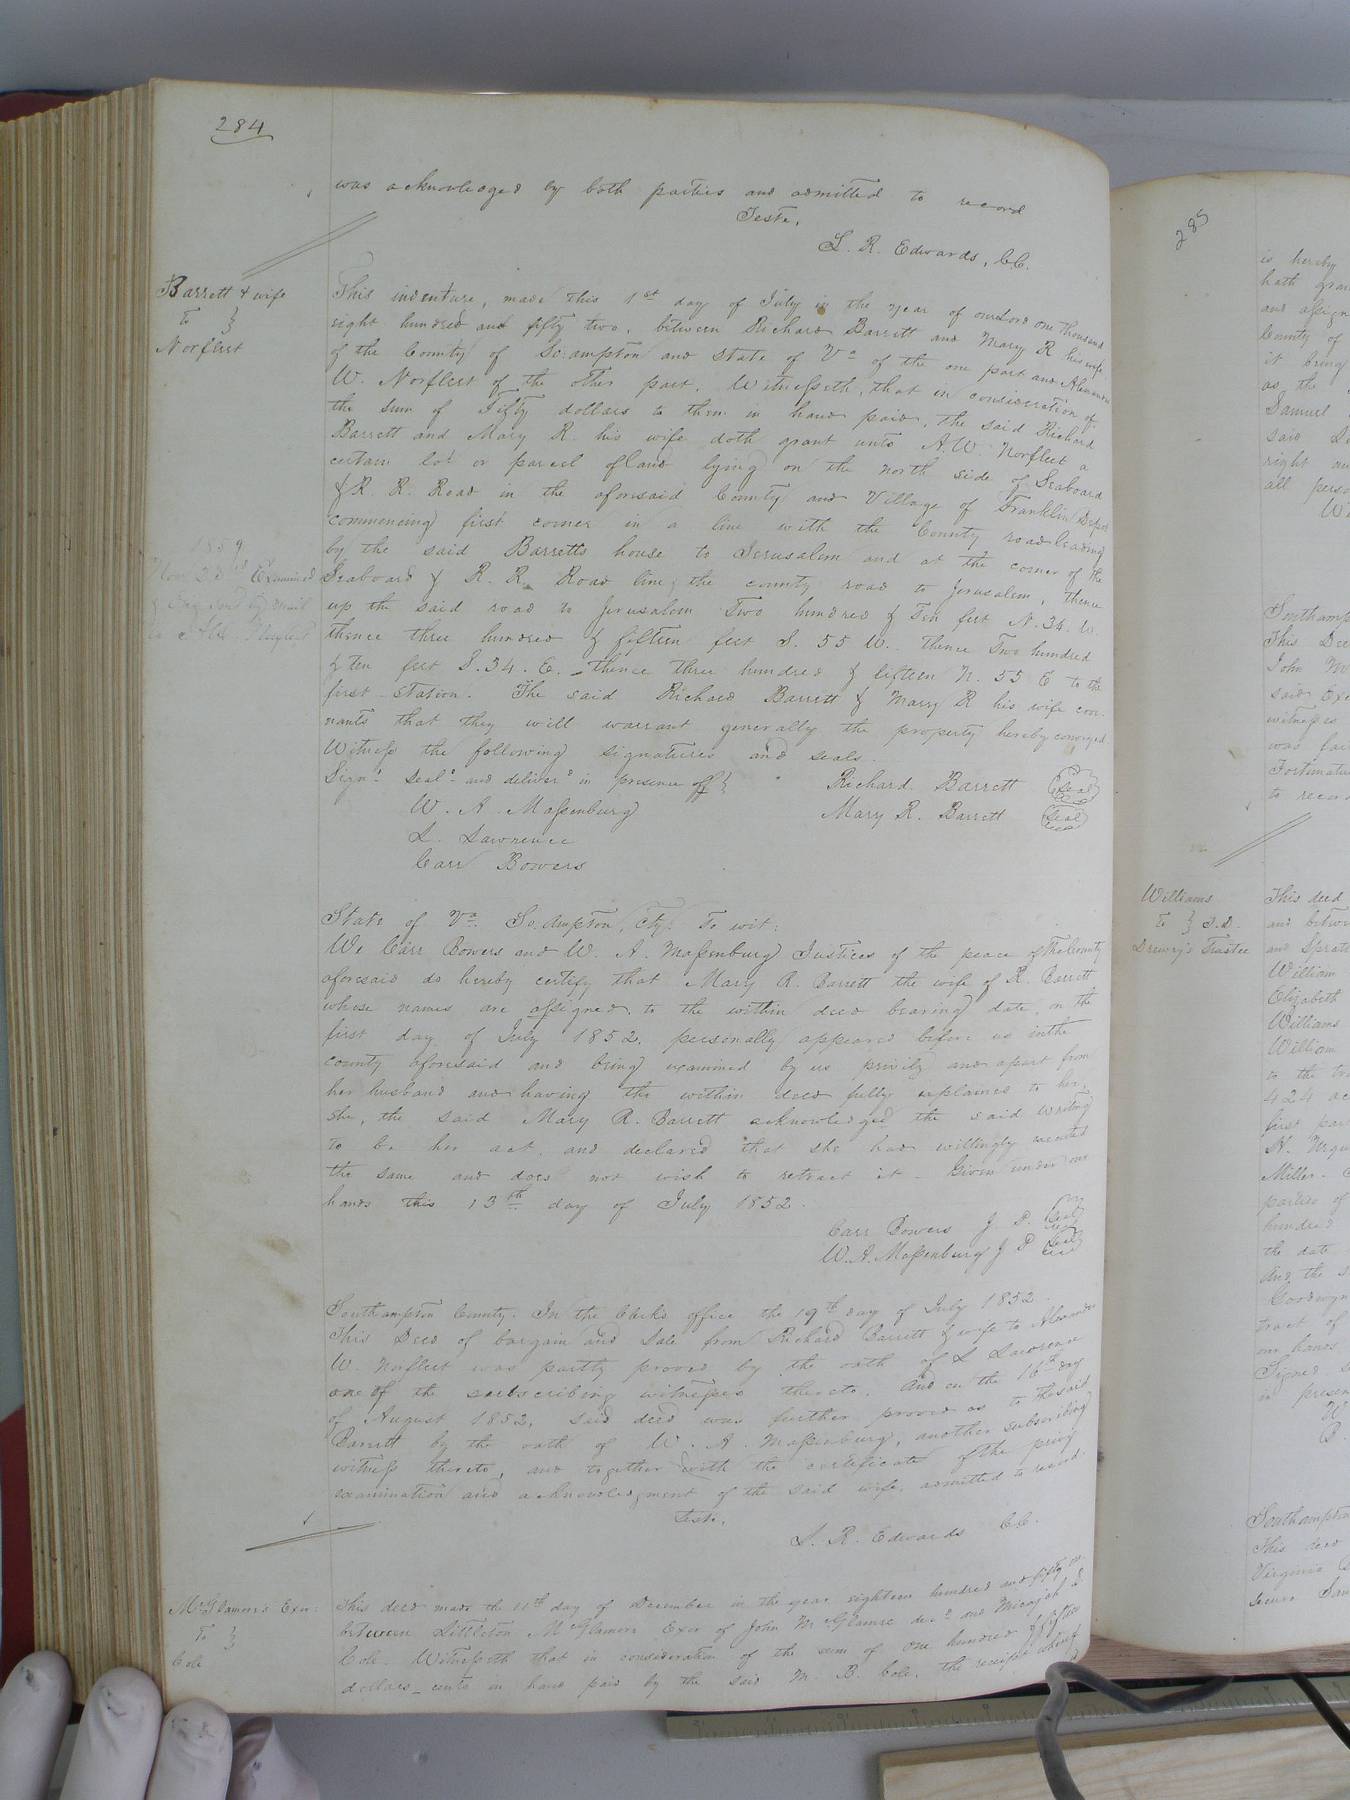 284
was acknowledged by both parties and admitted to record
Teste,
L. R. Edwards, CC.
Barrett & wife
To }
Norfleet
This indenture, made this 1st day of July in the year of our Lord one thousand
eight hundred and fifty two, between Richard Barrett and Mary R his wife
of the County of So.ampton and State of Va of the one part and Alexander
W. Norfleet of the other part. Witnesseth, that in consideration of
the sum of Fifty dollars to them in hand paid, the said Richard
Barrett and Mary R. his wife doth grant unto A. W. Norfleet a
certain lot or parcel of land lying on the north side of Seaboard
& R. R. Road in the aforesaid County and Village of Franklin Depot
commencing first corner in a line with the County road leading
by the said Barretts house to Jerusalem and at the corner of the
Seaboard & R. R. Road line, the county road to Jerusalem, thence
up the said road to Jerusalem Two hundred & Ten feet N. 34. W.
thence three hundred & fifteen feet S. 55 W. thence Two hundred
& ten feet S. 34. E. _ thence three hundred & fifteen N. 55 E to the
first station. The said Richard Barrett & Mary R his wife cov-
nants that they will warrant generally the property hereby conveyed
Witness the following signatures and seals.
1859
Nov 23d Examined
Signd Seald and deliverd in presence off }
Richard Barrett (Seal)
W. A. Massenburg
Mary R. Barrett (Seal)
L. Lawrence
Carr Bowers
State of Va So.ampton, Cty. To wit:
We Carr Bowers and W. A. Massenburg Justices of the peace of the County
aforesaid do hereby certify that Mary R. Barrett the wife of R. Barrett
whose names are assigned to the within deed bearing date on the
first day of July 1852, personally appeared before us in the
county aforesaid and being examined by us privily and apart from
her husband and having the within deed fully explained to her,
she, the said Mary R. Barrett acknowledged the said writing
to be her act, and declared that she had willingly executed
the same and does not wish to retract it _ Given under our
hands this 13th day of July 1852.
Carr Bowers J. P. (Seal)
W. A. Massenburg J P (Seal)
Southampton County: In the Clerks office the 19th day of July 1852.
This Deed of bargain and Sale from Richard Barrett & wife to Alexander
W. Norfleet was partly proved by the oath of L Lawrence
one of the subscribing witnesses thereto. And on the 16th day
of August 1852, said deed was further proved as to the said
Barrett by the oath of W. A. Massenburg, another subscribing
witness thereto, and together with the certificate of the privy
examination and acknowledgment of the said wife, admitted to record.
Teste.
L. R. Edwards CC.
McGlamore's Exor.
To }
Cole
This deed made the 11th day of December in the year eighteen hundred and fifty
between Littleton McGlamore Exor of John McGlamore decd and Micajah B
Cole. Witnesseth that in consideration of the sum of one hundred & fifteen
dollars _ cents in hand paid by the said M. B. Cole, the receipt whereof
285
is hereby
hath
and assign
County of
it being
as the
Samuel
said
right
all
Southamp
This Deed
John
said Exe
witness
was
Fortunatus
to record
Williams
To } T.D.
Drewry's Trustee
This deed
and
and
William
Elizabeth
Williams
William
to the
424 ac
first part
Miller.
parties of
hundred
the date
And the
Goodwyn
tract of
our hands
Signed
in presen
Southampton
This deed
Virginia
secure